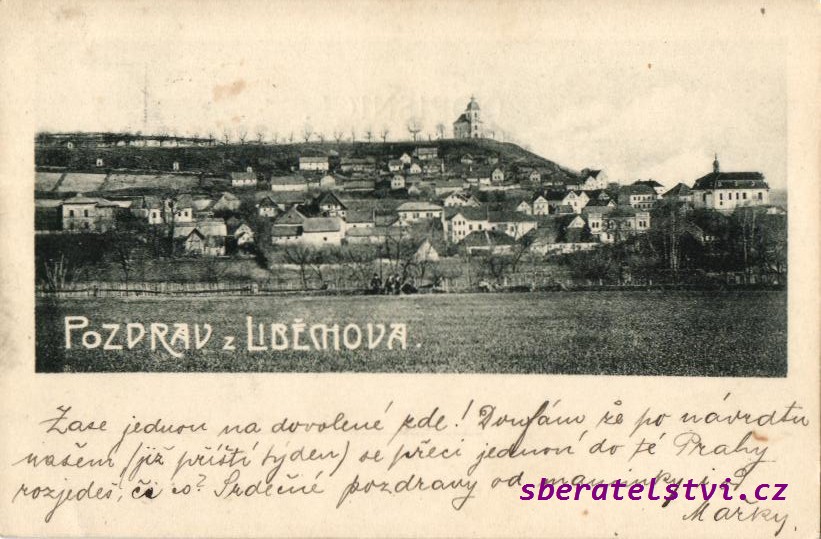 POZDRAV z LIBĚCHOVA.
Zase jednou na dovolené zde! Doufám že po návrdtu
našem (již příští týden) se přeci jednou do té Prahy
rozjedeš, či co? Srdečné pozdravy od maminky i od
Mařky.
sberatelstvi.cz